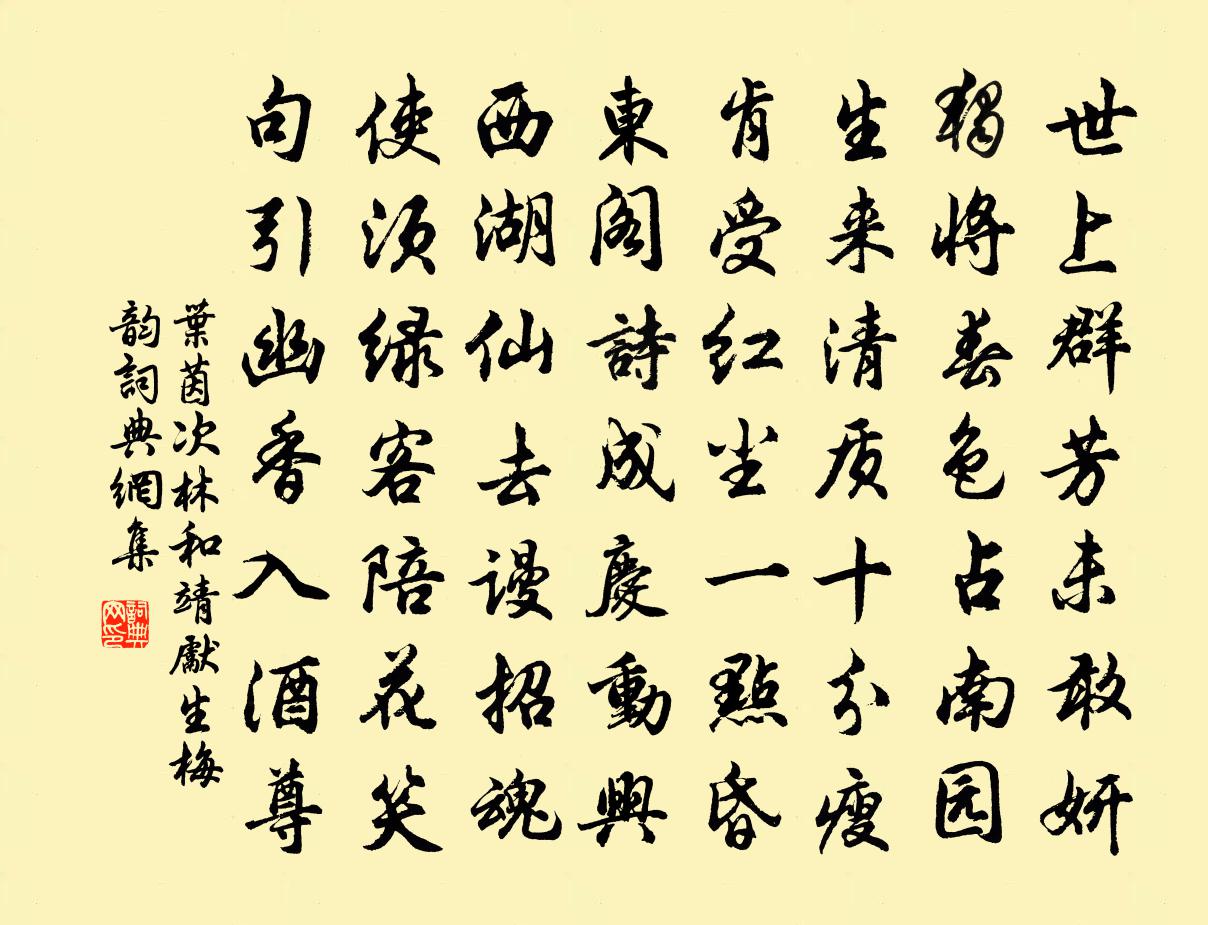 世上群芳未敢妍
獨將春色占南园
生来清质十分瘦
肯受红尘一點昏
東阁詩成慶動興
西湖仙去谩招魂
使须绿客陪花笑
句引幽香入酒尊
葉茵次林和靖獻生梅
韵詞典網集
詞典网印